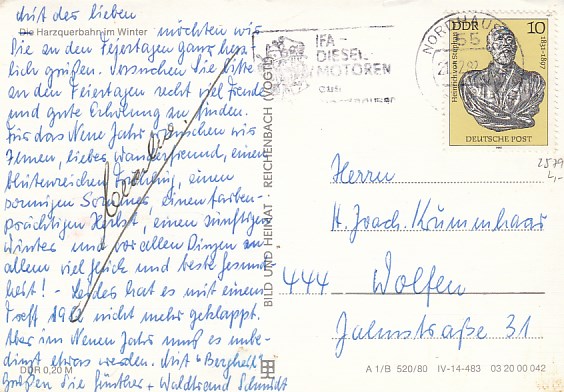 Mit der lieben
Die Harzquerbahn im Winter
möchten wir
Sie an den Feiertagen ganz herz-
lich grüßen. Versuchen Sie bitte
an den Feiertagen recht viel Freude
und gute Erholung zu finden.
Für das Neue Jahr wünschen wir
Ihnen, lieber Wanderfreund, einen
blütenreichen Frühling, einen
sonnigen Sommer, einen farben-
prächtigen Herbst, einen zünftigen
Winter und vor allen Dingen an
allem viel Glück und beste Gesund-
heit! - Leider hat es mit einem
Treff 1982 nicht mehr geklappt.
Aber im Neuen Jahr muß es unbe-
dingt etwas werden. Mit "Bergheil"
Grüßen die Günther + Waldtraud Schmidt
DDR 0,20 M
BILD UND HEIMAT - REICHENBACH (VOGTL)
IFA-
DIESEL-
MOTOREN
aus
NORDHAUSEN
DDR 10
Heinrich von Stephan
1831-1897
DEUTSCHE POST
2579
Herrn
H. Joach. Krummhaar
444 Wolfen
Jahnstraße 31
A 1/B 520/80 IV-14-483 03 20 00 042